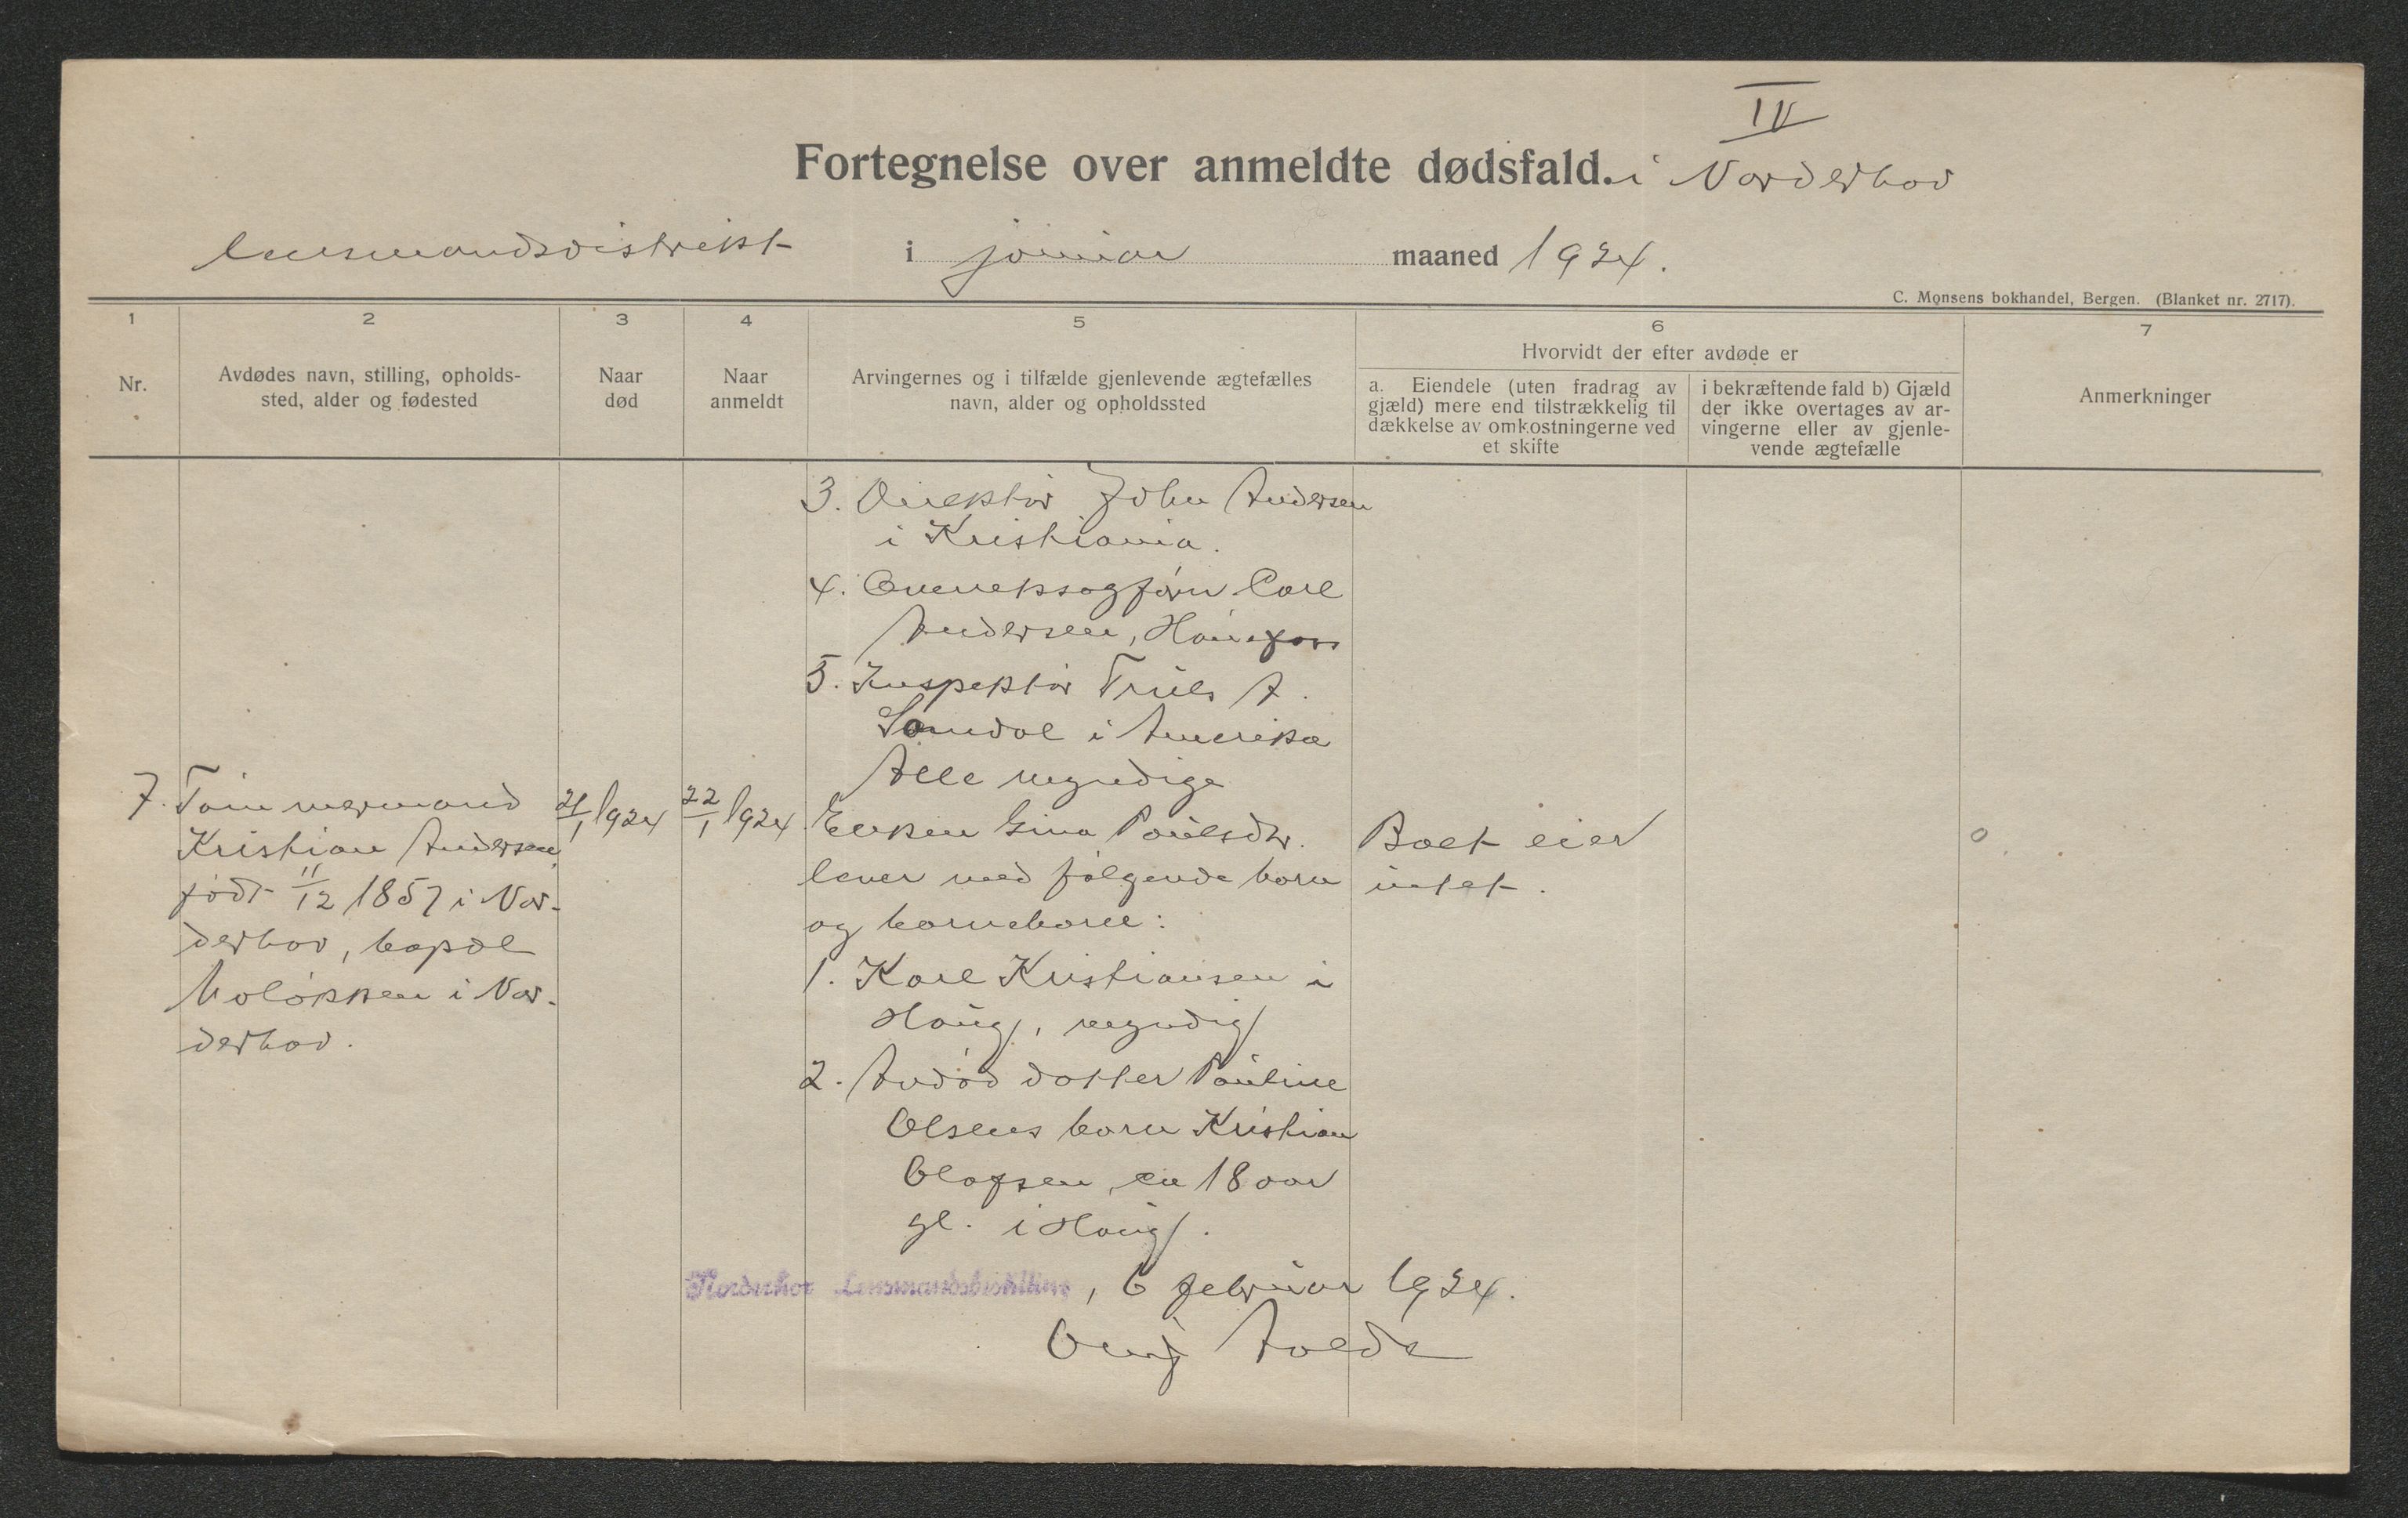 IV
Fortegnelse over anmeldte dødsfald. i Norderhov
lensmandsdistrikt i januar maaned 1924.
C. Monsens bokhandel, Bergen. (Blanket nr. 2717).
1 2 3 4 5 6 7
Nr.
Avdødes navn, stilling, opholds-
sted, alder og fødested
Naar
død
Naar
anmeldt
Arvingernes og i tilfælde gjenlevende ægtefælles
navn, alder og opholdssted
Hvorvidt der efter avdøde er
a. Eiendele (uten fradrag av
gjæld) mere end tilstrækkelig til
dækkelse av omkostningerne ved
et skifte
i bekræftende fald b) Gjæld
der ikke overtages av ar-
vingerne eller av gjenle-
vende ægtefælle
Anmerkninger
3. Direktør John Andersen
i Kristiania.
4. Overretssagfører Carl
Andersen, Hønefoss
5. Inspektør Truls A.
Somdal i Amerika
Alle myndige
7. Tømmermand
Kristian Andersen,
født 11/12 1857 i Nor-
derhov, bopæl
i Nor-
derhov.
21/1 1924
22/1 1924
Enken Gina Paulsdtr.
lever med følgende barn
og barnebarn:
1. Karl Kristiansen i
Haug, myndig
2. Avdød datter Pauline
Olsens barn Kristian
Olafsen, ca 18 aar
gl. i Haug.
Boet eier
intet.
0
Norderhov Lensmandsbestilling, 6 februar 1924.